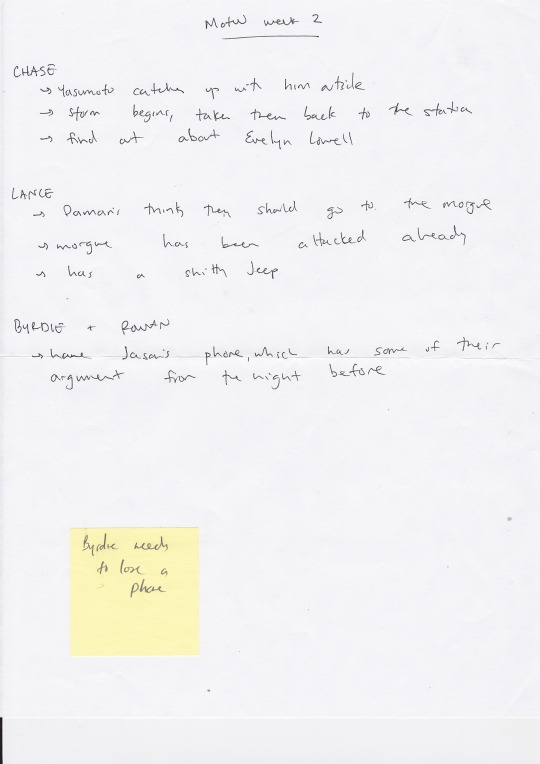 MotW week 2
CHASE
→ Yasumoto catches up with him outside
→ storm begins, takes them back to the station
→ find out about Evelyn Lowell
LANCE
→ Damaris thinks they should go to the morgue
→ morgue has been attacked already
→ has a shitty Jeep
BYRDIE + ROWAN
→ have Jason's phone, which has some of their
argument from the night before
Byrdie needs
to lose a
phone